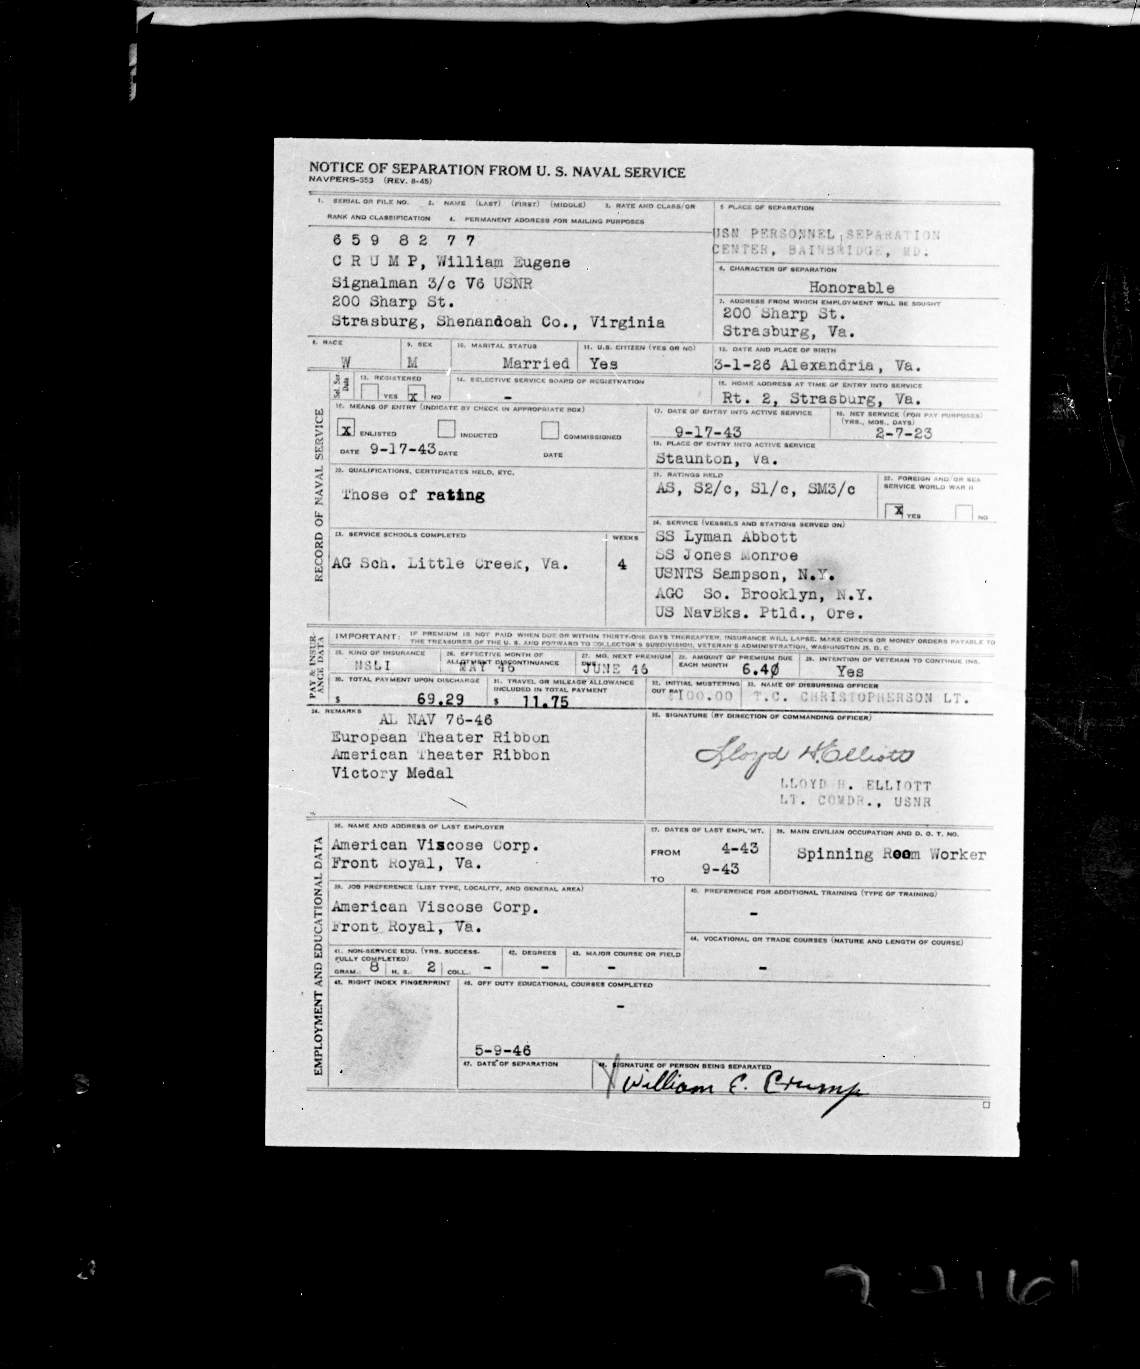 NOTICE OF SEPARATION FROM U. S. NAVAL SERVICE
NAVPERS-553 (REV. 8-45)
1. SERIAL OR FILE NO. 2. NAME (LAST) (FIRST) (MIDDLE) 3. RATE AND CLASS/OR
RANK AND CLASSIFICATION 4. PERMANENT ADDRESS FOR MAILING PURPOSES
659 82 77
CRUMP, William Eugene
Signalman 3/c V6 USNR
200 Sharp St.
Strasburg, Shenandoah Co., Virginia
5 PLACE OF SEPARATION
USN PERSONNEL SEPARATION
CENTER, BAINBRIDGE, MD.
6. CHARACTER OF SEPARATION
Honorable
7. ADDRESS FROM WHICH EMPLOYMENT WILL BE SOUGHT
200 Sharp St.
Strasburg, Va.
8. RACE
W
9. SEX
M
10. MARITAL STATUS
Married
11. U.S. CITIZEN (YES OR NO)
Yes
12. DATE AND PLACE OF BIRTH
3-1-26 Alexandria, Va.
Sel. Ser. Data
13. REGISTERED
YES X NO
14. SELECTIVE SERVICE BOARD OF REGISTRATION
-
15. HOME ADDRESS AT TIME OF ENTRY INTO SERVICE
Rt. 2, Strasburg, Va.
RECORD OF NAVAL SERVICE
16. MEANS OF ENTRY (INDICATE BY CHECK IN APPROPRIATE BOX)
X ENLISTED INDUCTED COMMISSIONED
DATE 9-17-43 DATE DATE
17. DATE OF ENTRY INTO ACTIVE SERVICE
9-17-43
18. NET SERVICE (FOR PAY PURPOSES)
(YRS., MOS., DAYS)
2-7-23
19. PLACE OF ENTRY INTO ACTIVE SERVICE
Staunton, Va.
20. QUALIFICATIONS, CERTIFICATES HELD, ETC.
Those of rating
21. RATINGS HELD
AS, S2/c, S1/c, SM3/c
22. FOREIGN AND/OR SEA
SERVICE WORLD WAR II
X YES NO
23. SERVICE SCHOOLS COMPLETED
WEEKS
AG Sch. Little Creek, Va. 4
24. SERVICE (VESSELS AND STATIONS SERVED ON)
SS Lyman Abbott
SS Jones Monroe
USNTS Sampson, N.Y.
AGC So. Brooklyn, N.Y.
US NavBks. Ptld., Ore.
PAY & INSURANCE DATA
IMPORTANT: IF PREMIUM IS NOT PAID WHEN DUE OR WITHIN THIRTY-ONE DAYS THEREAFTER, INSURANCE WILL LAPSE. MAKE CHECKS OR MONEY ORDERS PAYABLE TO
THE TREASURER OF THE U. S. AND FORWARD TO COLLECTOR'S SUBDIVISION, VETERAN'S ADMINISTRATION, WASHINGTON 25, D. C.
25. KIND OF INSURANCE
NSLI
26. EFFECTIVE MONTH OF
ALLOTMENT DISCONTINUANCE
MAY 46
27. MO. NEXT PREMIUM
DUE
JUNE 46
28. AMOUNT OF PREMIUM DUE
EACH MONTH
6.40
29. INTENTION OF VETERAN TO CONTINUE INS.
Yes
30. TOTAL PAYMENT UPON DISCHARGE
$ 69.29
31. TRAVEL OR MILEAGE ALLOWANCE
INCLUDED IN TOTAL PAYMENT
$ 11.75
32. INITIAL MUSTERING
OUT PAY
$100.00
33. NAME OF DISBURSING OFFICER
T.C. CHRISTOPHERSON LT.
34. REMARKS
AL NAV 76-46
European Theater Ribbon
American Theater Ribbon
Victory Medal
35. SIGNATURE (BY DIRECTION OF COMMANDING OFFICER)
Lloyd H. Elliott
LLOYD H. ELLIOTT
LT. COMDR., USNR
EMPLOYMENT AND EDUCATIONAL DATA
36. NAME AND ADDRESS OF LAST EMPLOYER
American Viscose Corp.
Front Royal, Va.
37. DATES OF LAST EMPL'MT.
FROM 4-43
9-43
TO
38. MAIN CIVILIAN OCCUPATION AND D. O. T. NO.
Spinning Room Worker
39. JOB PREFERENCE (LIST TYPE, LOCALITY, AND GENERAL AREA)
American Viscose Corp.
Front Royal, Va.
40. PREFERENCE FOR ADDITIONAL TRAINING (TYPE OF TRAINING)
-
41. NON-SERVICE EDU. (YRS. SUCCESS-
FULLY COMPLETED)
GRAM.: 8 H. S.: 2 COLL.: -
42. DEGREES
-
43. MAJOR COURSE OR FIELD
-
44. VOCATIONAL OR TRADE COURSES (NATURE AND LENGTH OF COURSE)
-
45. RIGHT INDEX FINGERPRINT
46. OFF DUTY EDUCATIONAL COURSES COMPLETED
-
5-9-46
47. DATE OF SEPARATION
48. SIGNATURE OF PERSON BEING SEPARATED
William E. Crump